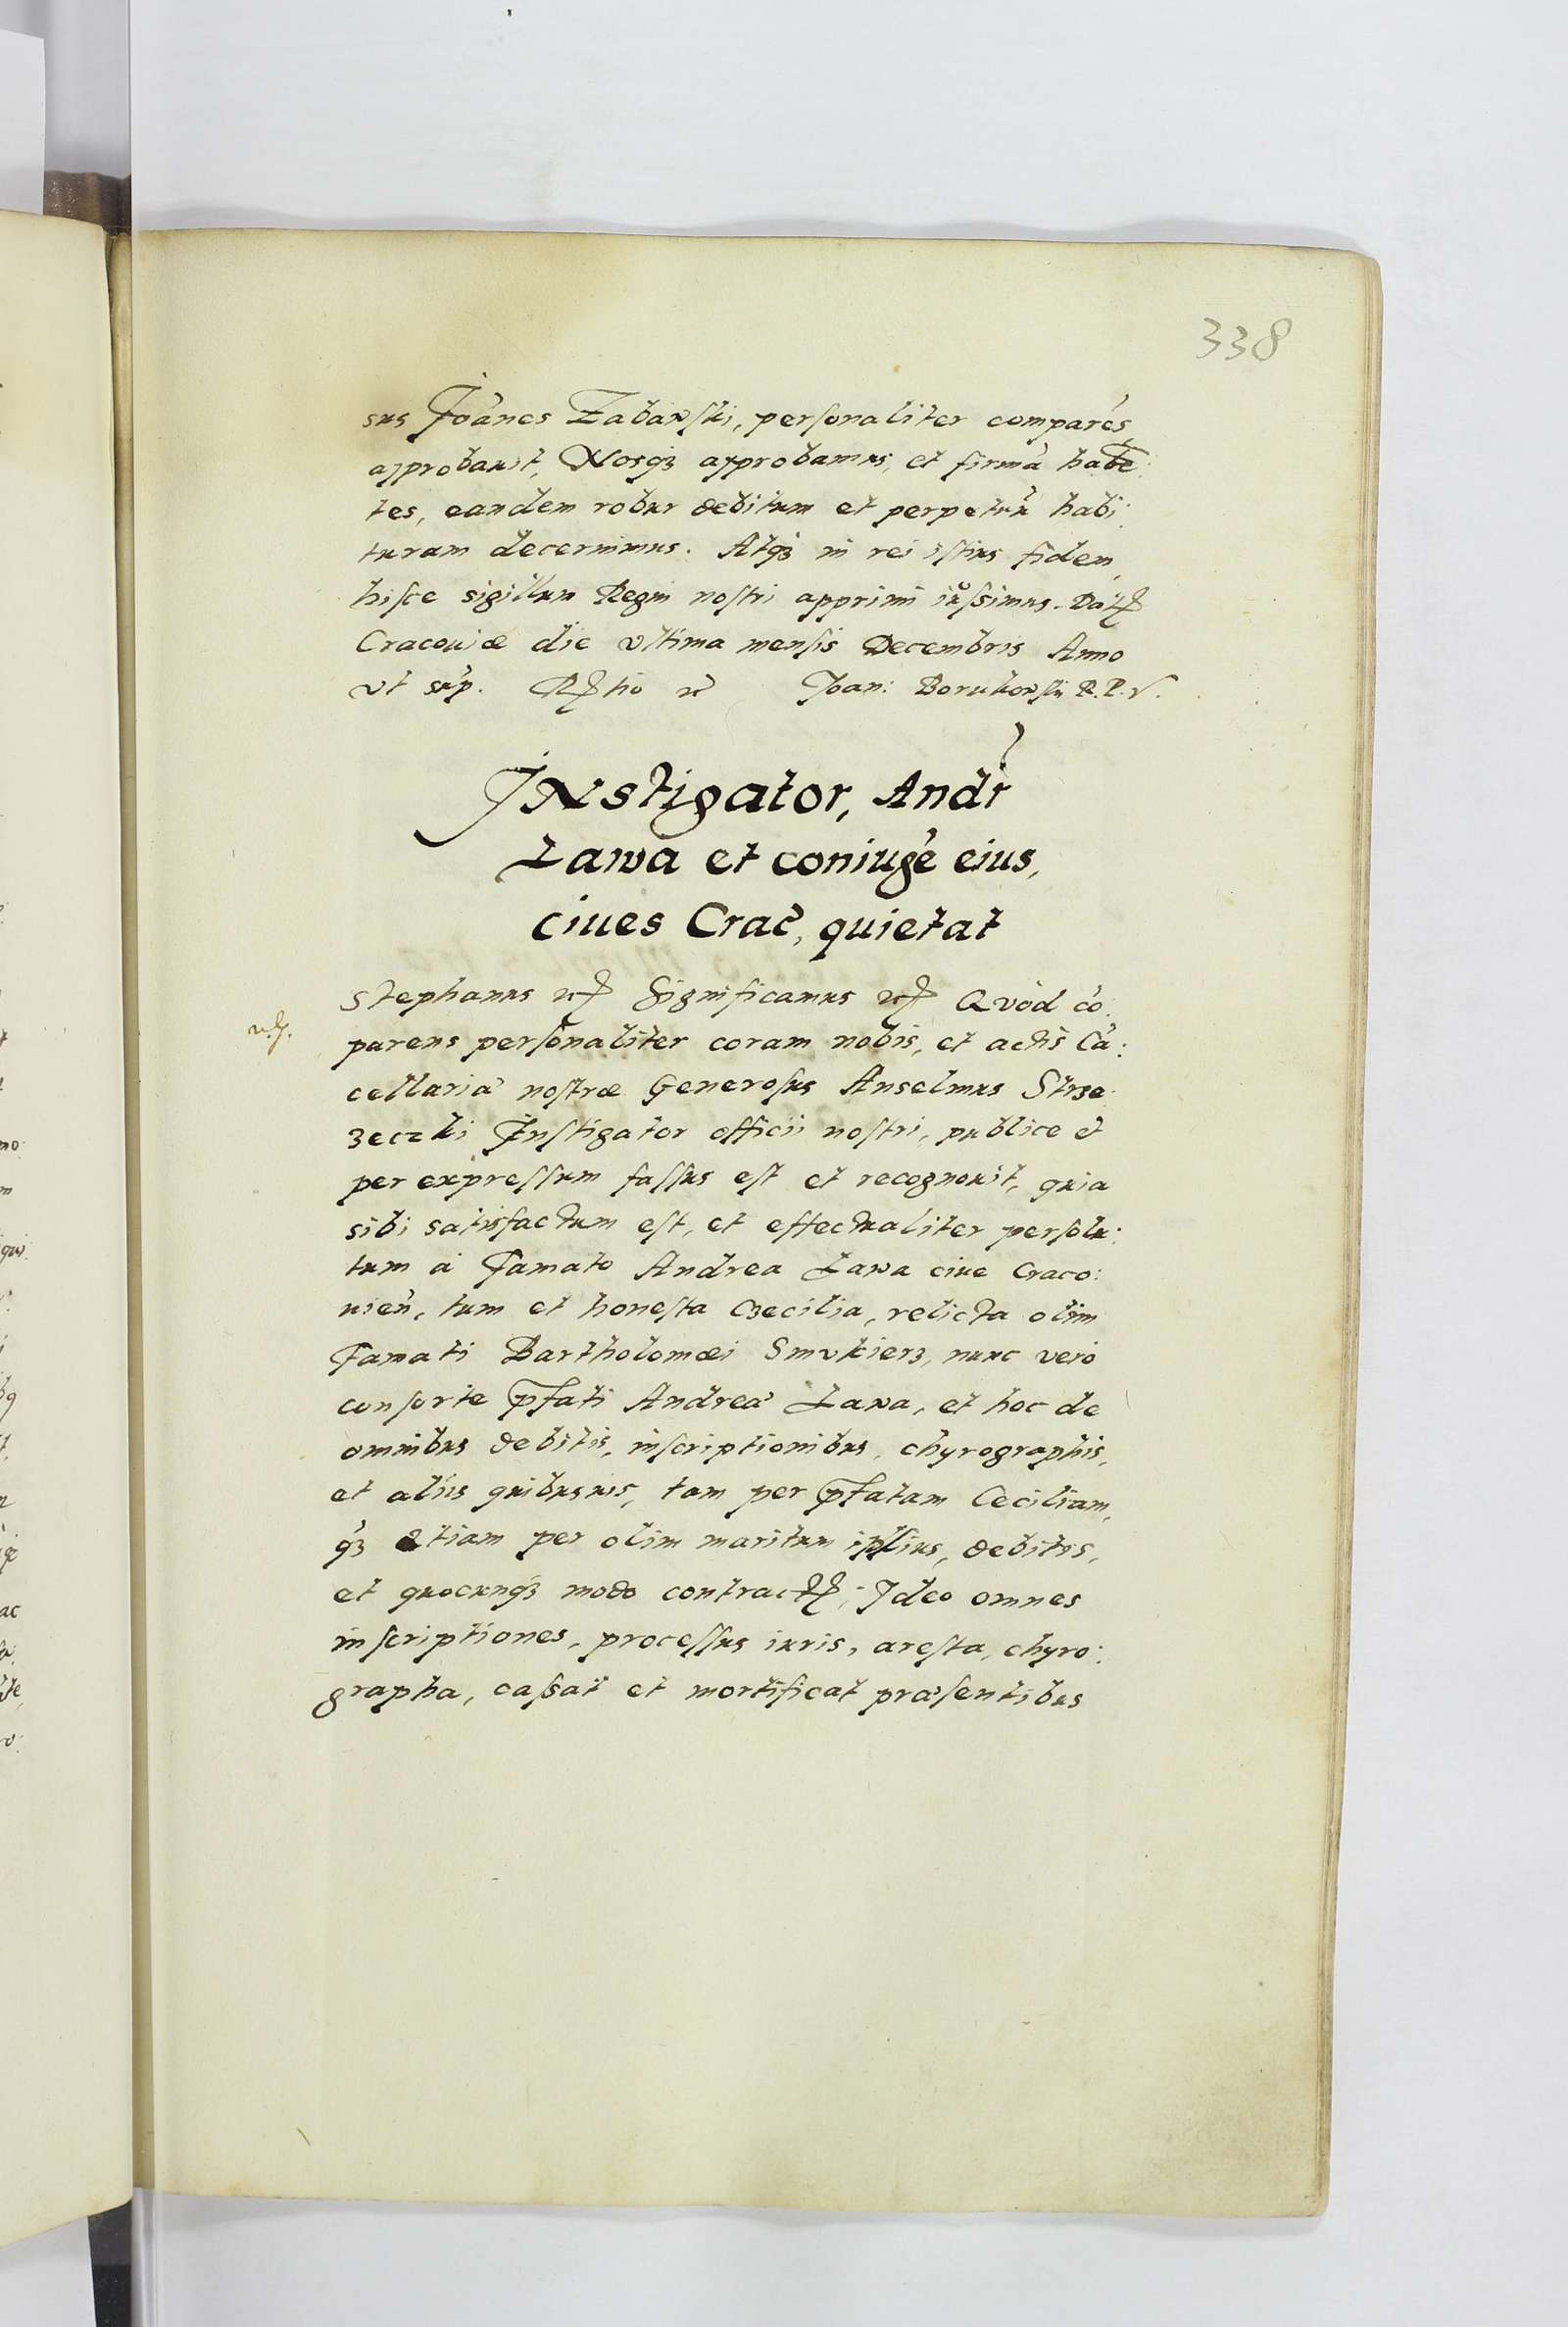 338
sus Joānes Zabawski, personaliter comparēs
approbauit, Nosqȝ approbamus, et firmā habē:
tes, eandem robur debitum et perpetuū habi:
turam decernimus. Atqȝ in rei istius fidem,
hisce sigillum Regni nostri apprimi iussimus. Dat
Cracouiæ die vltima mensis Decembris Anno
vt sup. Joan: Borukowski R. P. V.
INstigator, Andr
Ława et coniugē eius,
ciues Crac, quietat
Stephanus etc Significamus etc Quod cō:
parens personaliter coram nobis, et actis Cā:
cellariæ nostræ Generosus Anselmus Strze:
zeczki Instigator officii nostri, publice et
per expressum fassus est et recognouit, quia
sibi satisfactum est, et effectualiter persolu:
tum à Famato Andrea Ława ciue Craco:
uień, tum et honesta Czecilia, relicta olim
Famati Bartholomæi Smvkierz, nunc vero
consorte pfati Andreæ Ława, et hoc de
omnibus debitis, inscriptionibus, chyrographis,
et aliis quibusuis, tam per pfatam Ceciliam,
qȝ etiam per olim maritum ipsius, debitis,
et quocunqȝ modo contract; Ideo omnes
inscriptiones, processus iuris, aresta, chyro:
grapha, cassat et mortificat præsentibus